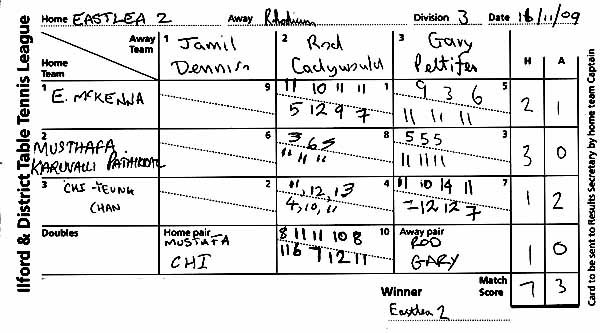 Ilford & District Table Tennis League
Home EASTLEA 2 Away Rhodium Division 3 Date 16/11/09
Away Team
Home Team
1 Jamil Dennison
2 Rod
3 Gary Peltifer
H A
1 E. McKENNA
9
11 10 11 11 1
5 12 9 7
9 3 6 5
11 11 11
2 1
2 MUSTHAFA KARUVALLI
6
3 6 5 8
11 11 11
5 5 5 3
11 11 11
3 0
3 CHI-TEUNG CHAN
2
11, 12, 13 4
4, 10, 11
11 10 14 11 7
12 12 7
1 2
Doubles
Home pair
MUSTAFA
CHI
8 11 11 10 8 10
11 6 7 12 11
Away pair
ROD
GARY
1 0
Winner
Eastlea 2
Match Score
7 3
Card to be sent to Results Secretary by home team Captain